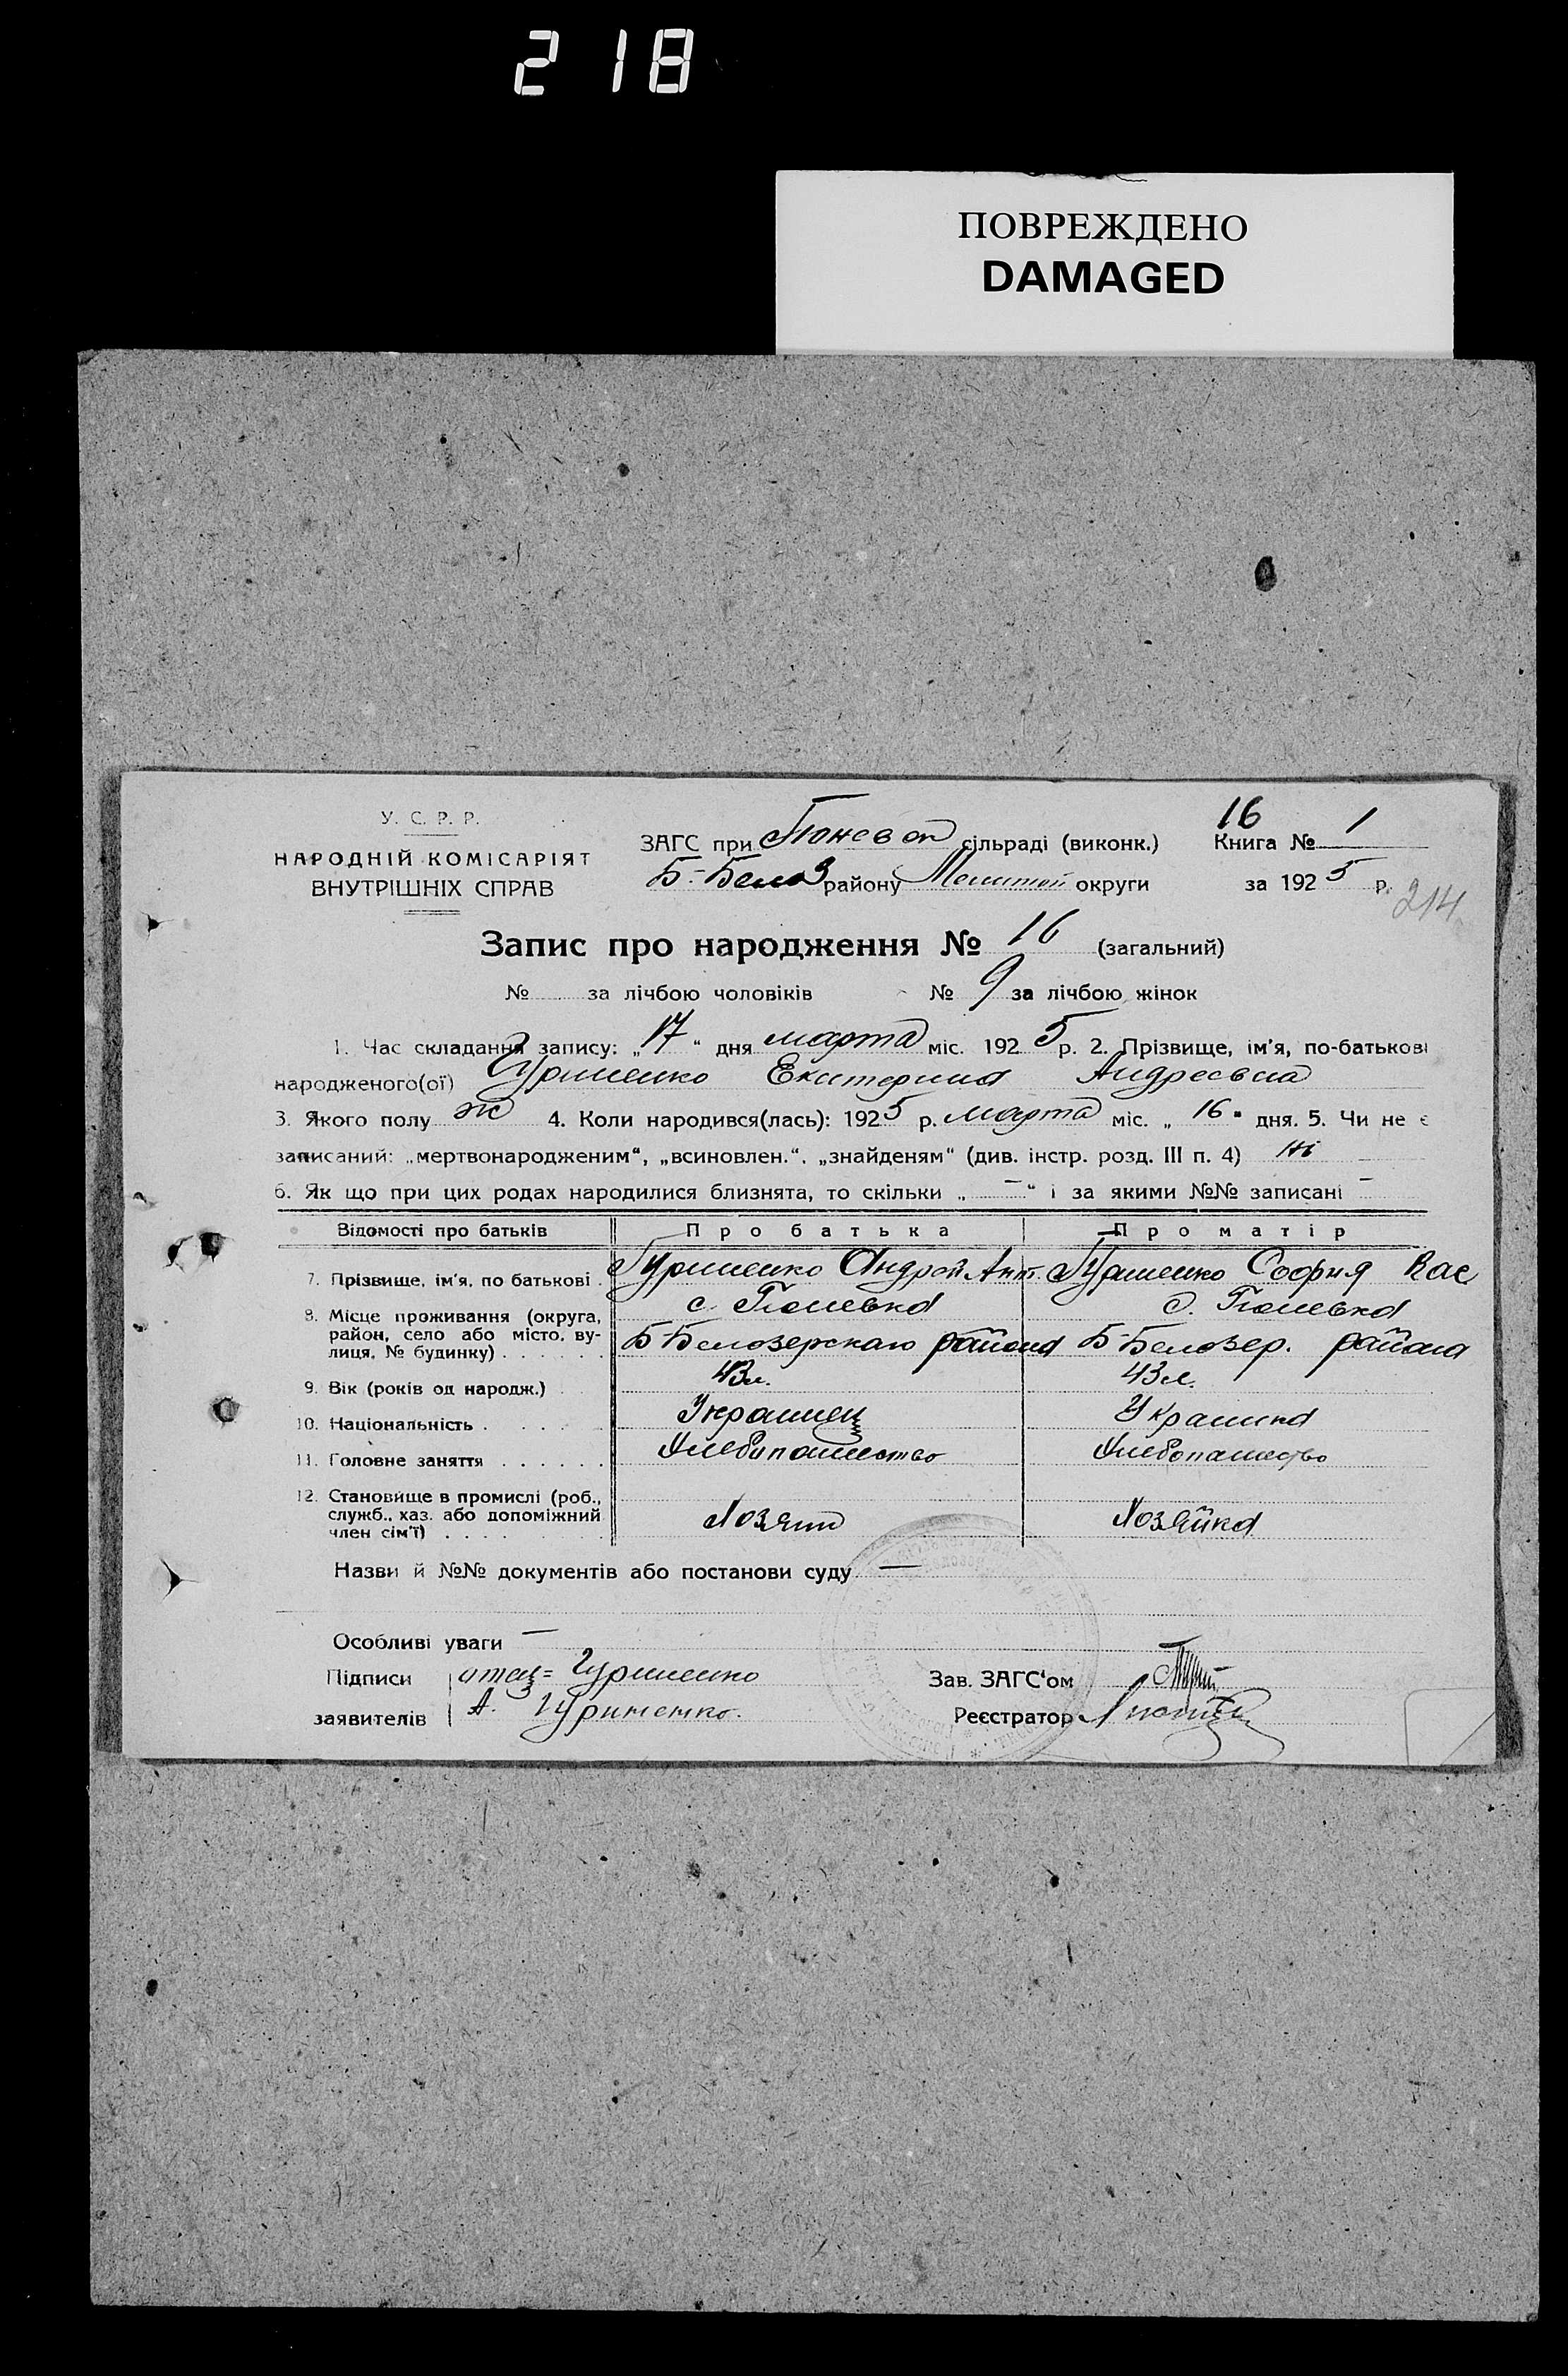 218
ПОВРЕЖДЕНО
DAMAGED
У. С. Р. Р.
НАРОДНІЙ КОМІСАРІЯТ
ВНУТРІШНІХ СПРАВ
ЗАГС при сільраді (виконк.)
Б-Белоз району округи
16
Книга № 1
за 1925 р.
214
Запис про народження № 16 (загальний)
№ за лічбою чоловіків № 9 за лічбою жінок
1. Час складання запису: „17“ дня марта міс. 1925 р. 2. Прізвище, ім'я, по-батькові
народженого(ої) Гуриненко Екатерина Андреевна
3. Якого полу ж 4. Коли народився(лась): 1925 р. марта міс. „16“ дня. 5. Чи не є
записаний: „мертвонародженим“, „всиновлен.“, „знайденям“ (див. інстр. розд. III п. 4) ні
6. Як що при цих родах народилися близнята, то скільки „—“ і за якими №№ записані —
Відомості про батьків Про батька Про матір
7. Прізвище, ім'я, по батькові . Гуриненко Андрей Ант. София Вас
8. Місце проживання (округа, район, село або місто, вулиця, № будинку) . . . . . .
с.
Б-Белозерскаго района Б-Белозер. района
9. Вік (років од народж.) 43 л. 43 л.
10. Національність . . . . . Украинец Украинка
11. Головне заняття . . . . . . Хлебопашество Хлебопашество
12. Становище в промислі (роб., служб., хаз. або допоміжний член сім'ї) . . . . Хозяин Хозяйка
Назви й №№ документів або постанови суду —
Особливі уваги —
Підписи заявителів
отец = Гуриненко
А. Гуриненко.
Зав. ЗАГС'ом
Реєстратор